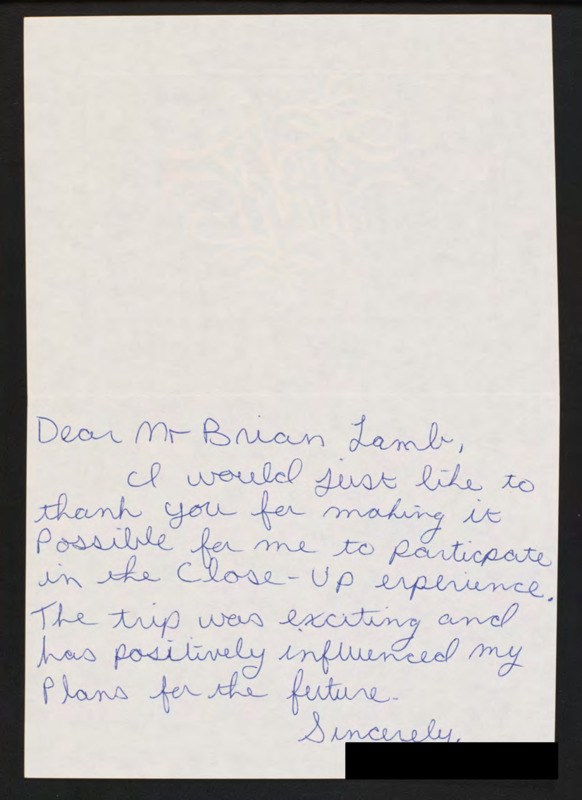 Dear Mr Brian Lamb,
I would just like to
thank you for making it
Possible for me to particpate
in the Close-Up experience.
The trip was exciting and
has positively influenced my
Plans for the future.
Sincerely,